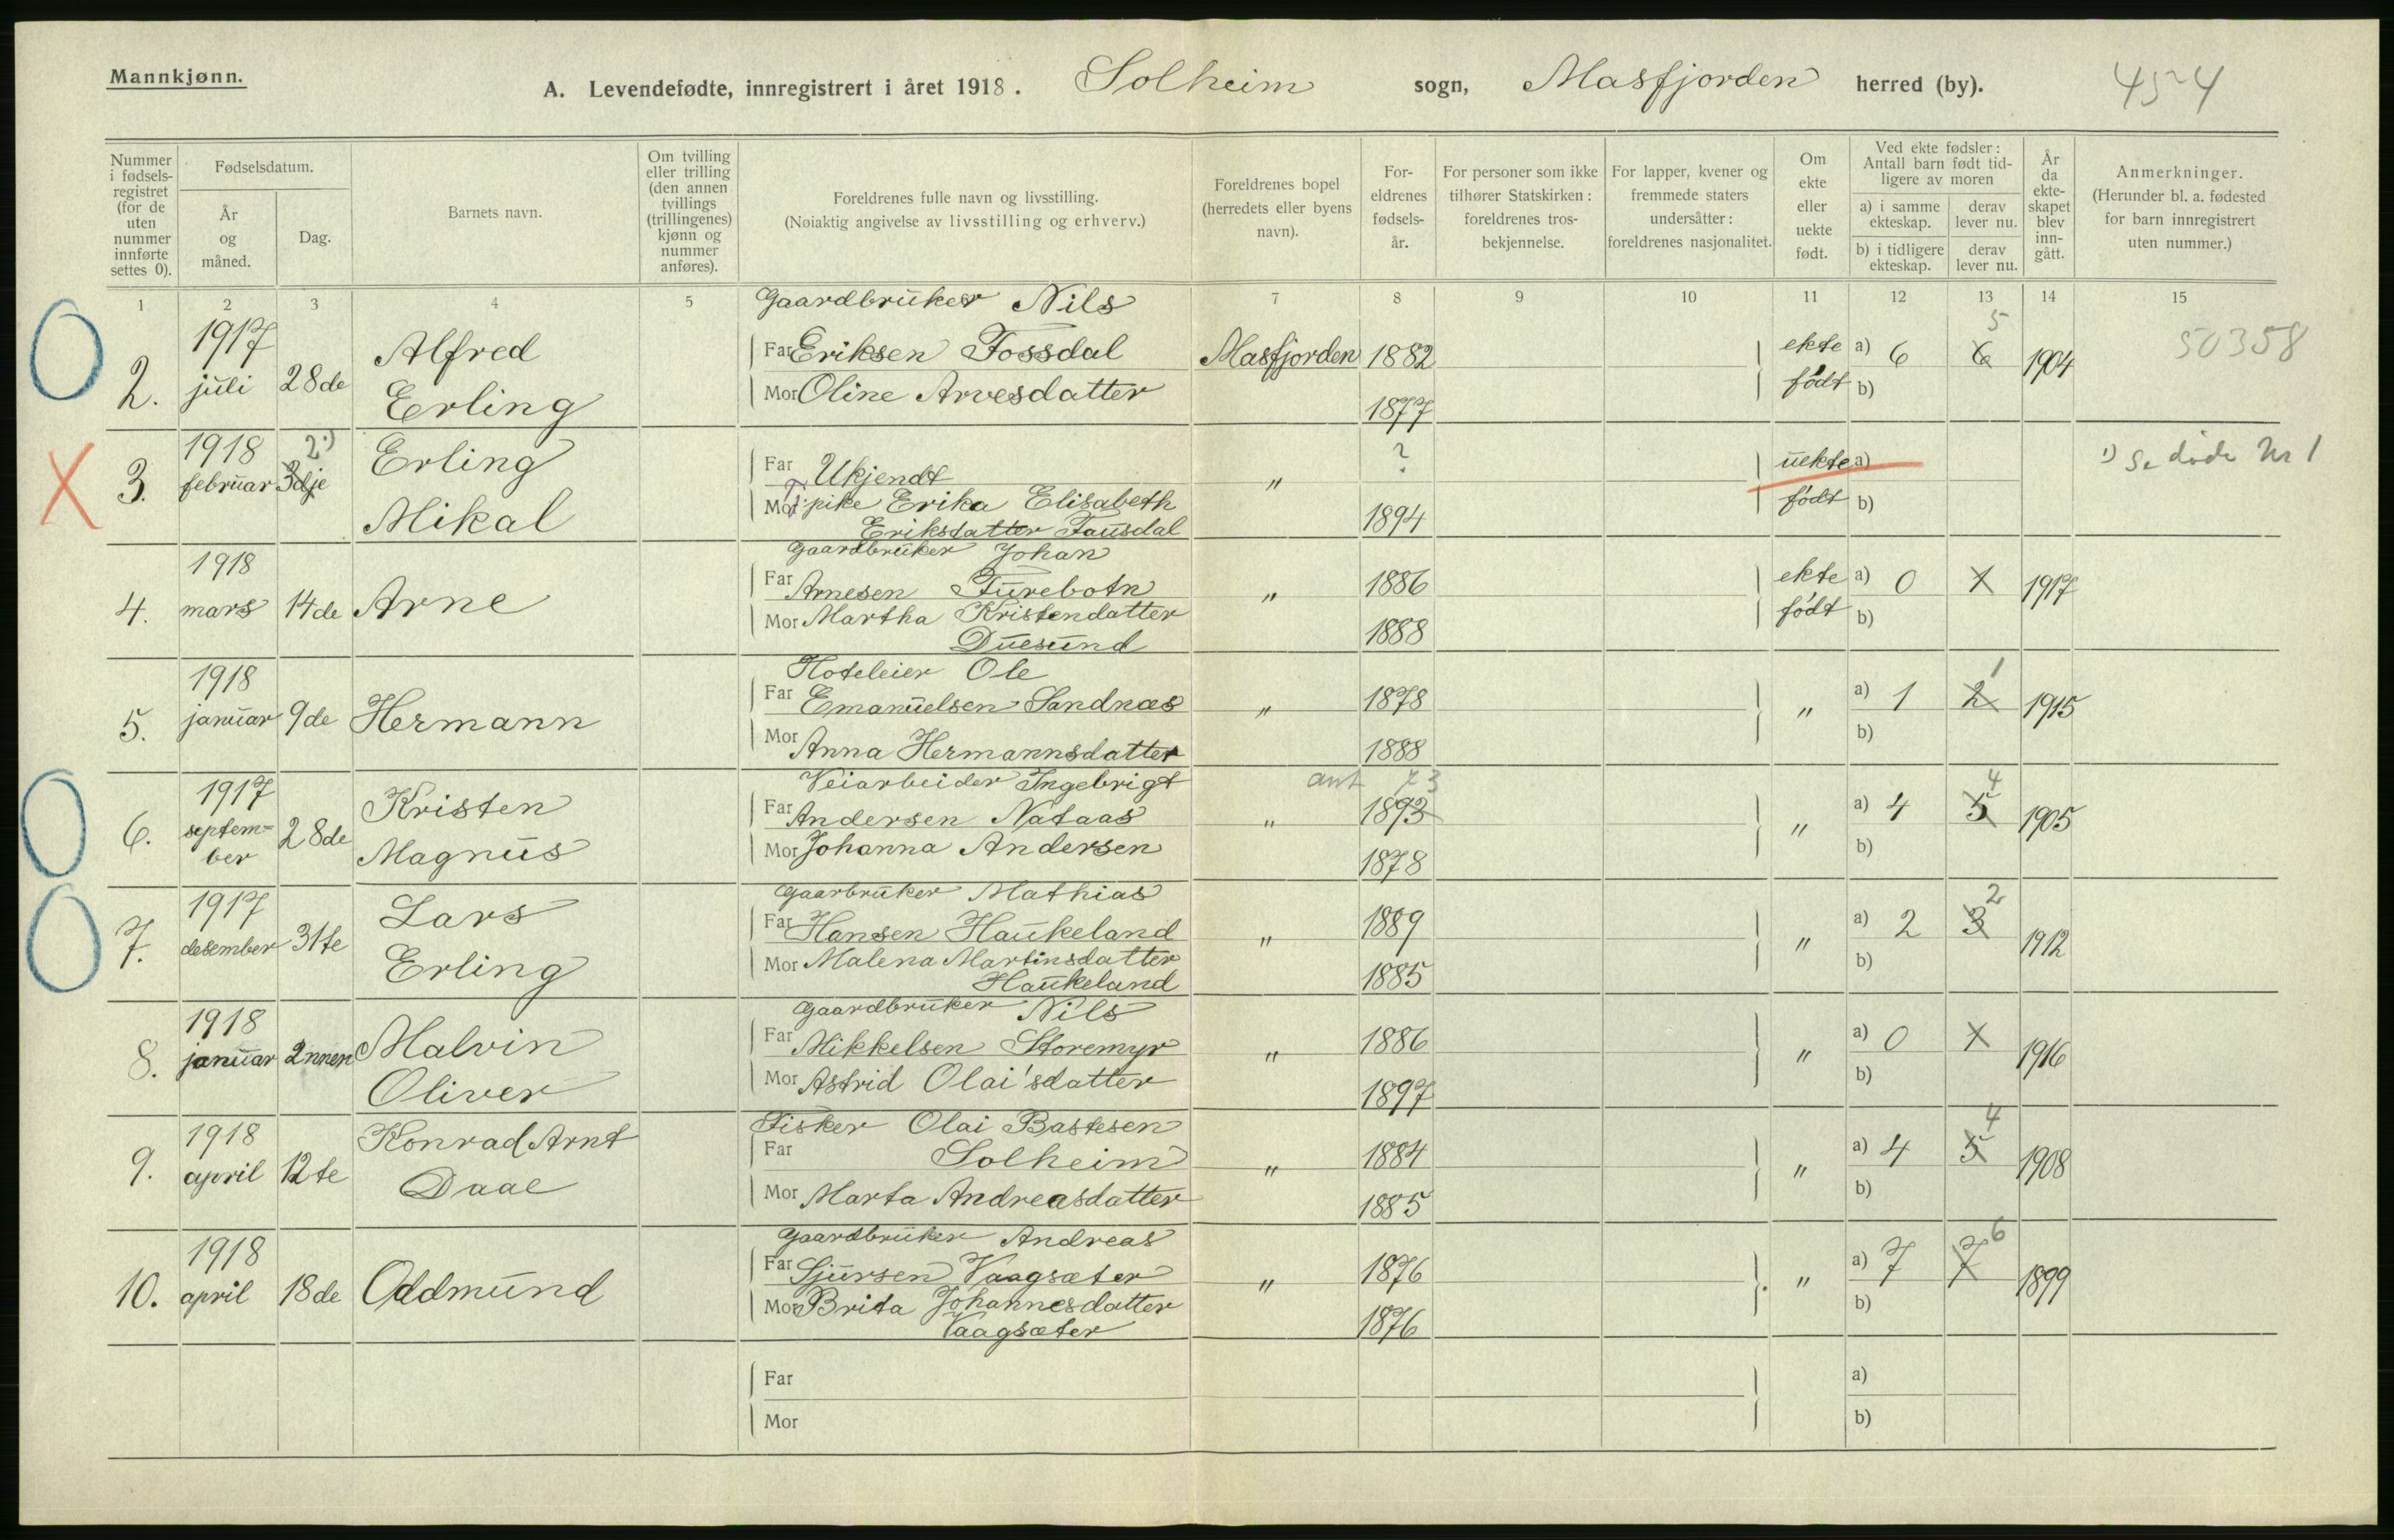 Mannkjønn.
A. Levendefødte, innregistrert i året 1918. Solheim sogn, Masfjorden herred (by). 4524
Nummer i fødsels-registret (for de uten nummer innførte settes 0).
Fødselsdatum.
År og måned.
Dag.
Barnets navn.
Om tvilling eller trilling (den annen tvillings (trillingenes) kjønn og nummer anføres).
Foreldrenes fulle navn og livsstilling.
(Nøiaktig angivelse av livsstilling og erhverv.)
Foreldrenes bopel (herredets eller byens navn).
For-eldrenes fødsels-år.
For personer som ikke tilhører Statskirken: foreldrenes tros-bekjennelse.
For lapper, kvener og fremmede staters undersåtter: foreldrenes nasjonalitet.
Om ekte eller uekte født.
Ved ekte fødsler: Antall barn født tid-ligere av moren
a) i samme ekteskap.
derav lever nu.
b) i tidligere ekteskap.
derav lever nu.
År da ekte-skapet blev inn-gått.
Anmerkninger.
(Herunder bl. a. fødested for barn innregistrert uten nummer.)
1 2 3 4 5 7 8 9 10 11 12 13 14 15
Gaardbruker Nils
2. 1917 juli 28de Alfred Erling Far Eriksen Fossdal Masfjorden 1882 ekte født a) 6 6 5 1904 50358
Mor Oline Arvesdatter 1877 b)
3. 1918 februar 3dje 2) Erling Mikal Far Ukjendt " ? uekte født a) 1) Se døde Nr 1
Mor T. pike Erika Elisabeth 1894 b)
Eriksdatter Fausdal
Gaardbruker Johan
4. 1918 mars 14de Arne Far Arnesen Furebotn " 1886 ekte født a) 0 X 1917
Mor Martha Kristendatter 1888 b)
Duesund
Hoteleier Ole
5. 1918 januar 9de Hermann Far Emanuelsen Sandnæs " 1878 " a) 1 2 1 1915
Mor Anna Hermannsdatter 1888 b)
Veiarbeider Ingebrigt ant 73
6. 1917 septem-ber 28de Kristen Magnus Far Andersen Nataas " 1893 " a) 4 5 4 1905
Mor Johanna Andersen 1878 b)
Gaarbruker Mathias
7. 1917 desember 31te Lars Erling Far Hansen Haukeland " 1889 " a) 2 3 2 1912
Mor Malena Martinsdatter 1885 b)
Haukeland
Gaardbruker Nils
8. 1918 januar 2nnen Malvin Oliver Far Mikkelsen Storemyr " 1886 " a) 0 X 1916
Mor Astrid Olai'sdatter 1897 b)
Fisker Olai Bastesen
9. 1918 april 12te Konrad Arnt Daae Far Solheim " 1884 " a) 4 5 4 1908
Mor Marta Andreasdatter 1885 b)
Gaardbruker Andreas
10. 1918 april 18de Oddmund Far Sjursen Vaagsæter " 1876 " a) 7 7 6 1899
Mor Brita Johannesdatter 1876 b)
Vaagsæter
Far a)
Mor b)